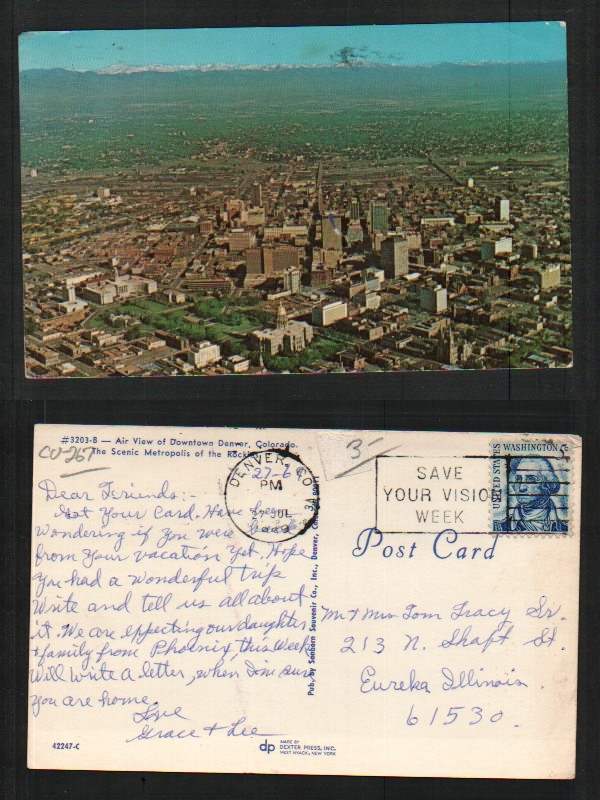 #3203-B — Air View of Downtown Denver, Colorado.
The Scenic Metropolis of the
CU-267
3-
DENVER, CO
27-6
PM
27 JUL
SAVE
YOUR VISION
WEEK
UNITED STATES
WASHINGTON 5c
Post Card
Dear Friends:-
Got your Card. Have been
Wondering if you were
from your vacation yet. Hope
You had a wonderful trip
Write and tell us all about
it. We are expecting our daughter
& family from Phoenix, this Week
Will write a letter, when I'm sure
you are home.
Love
Grace & Lee
Mr & Mrs Tom Tracy Sr.
213 N. Shaft St.
Eureka Illinois.
61530.
Pub. by Sanborn Souvenir Co., Inc., Denver,
42247-C
dp
MADE BY
DEXTER PRESS, INC.
WEST NYACK, NEW YORK